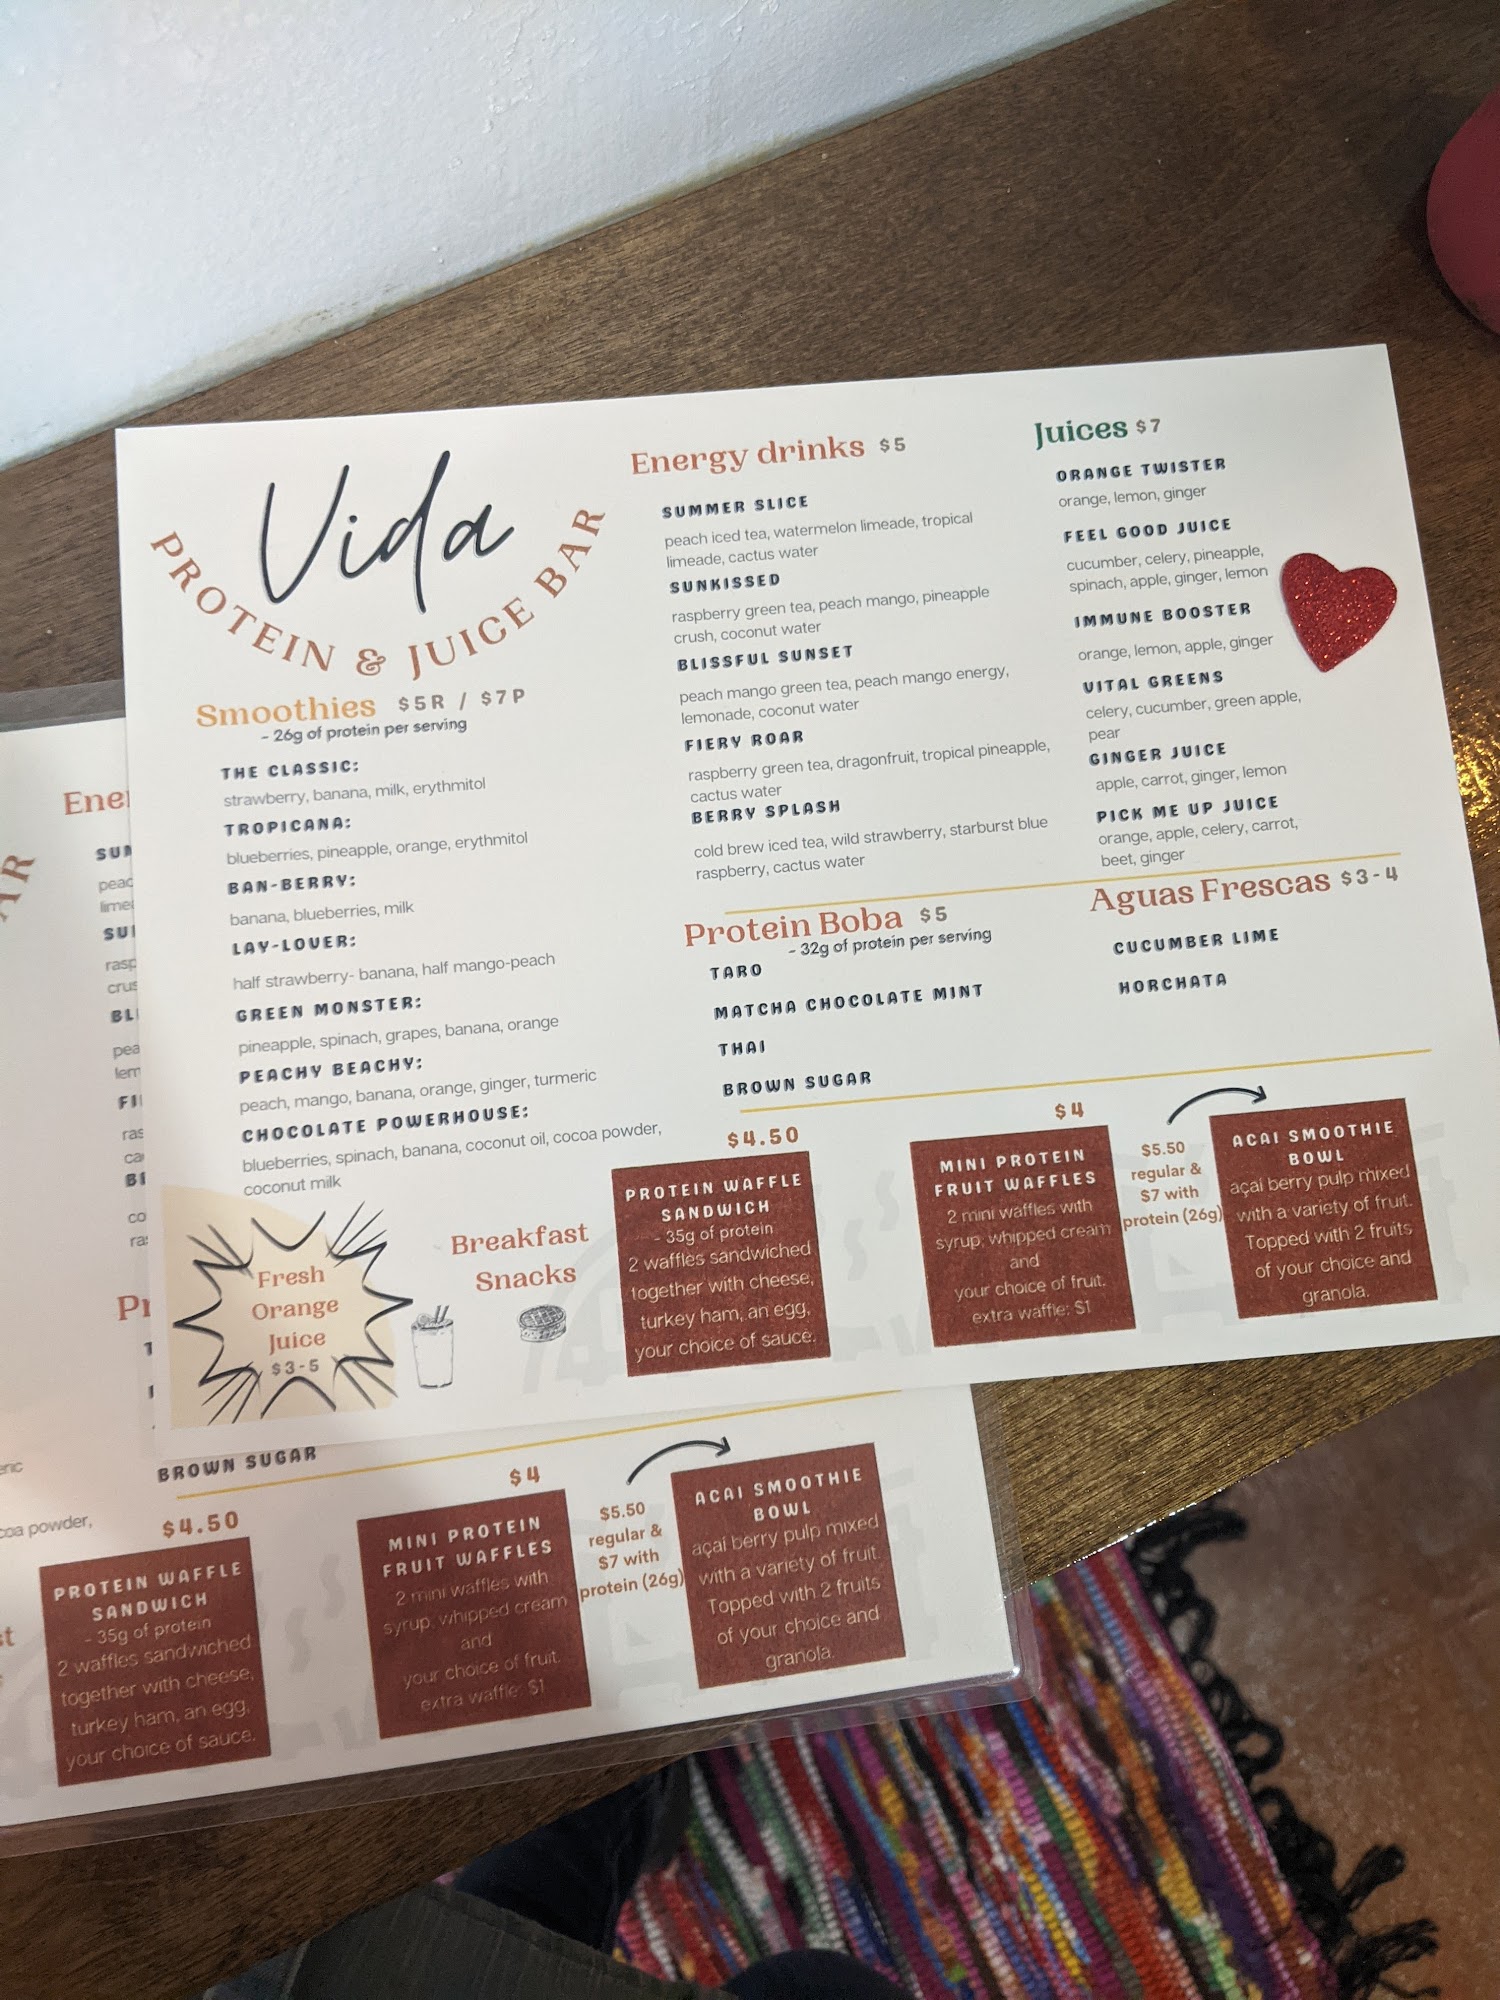 Vida
PROTEIN & JUICE BAR
Smoothies $5R / $7P
- 26g of protein per serving
THE CLASSIC:
strawberry, banana, milk, erythmitol
TROPICANA:
blueberries, pineapple, orange, erythmitol
BAN-BERRY:
banana, blueberries, milk
LAY-LOVER:
half strawberry- banana, half mango-peach
GREEN MONSTER:
pineapple, spinach, grapes, banana, orange
PEACHY BEACHY:
peach, mango, banana, orange, ginger, turmeric
CHOCOLATE POWERHOUSE:
blueberries, spinach, banana, coconut oil, cocoa powder,
coconut milk
Fresh
Orange
Juice
$3-5
Breakfast
Snacks
Energy drinks $5
SUMMER SLICE
peach iced tea, watermelon limeade, tropical
limeade, cactus water
SUNKISSED
raspberry green tea, peach mango, pineapple
crush, coconut water
BLISSFUL SUNSET
peach mango green tea, peach mango energy,
lemonade, coconut water
FIERY ROAR
raspberry green tea, dragonfruit, tropical pineapple,
cactus water
BERRY SPLASH
cold brew iced tea, wild strawberry, starburst blue
raspberry, cactus water
Protein Boba $5
- 32g of protein per serving
TARO
MATCHA CHOCOLATE MINT
THAI
BROWN SUGAR
Juices $7
ORANGE TWISTER
orange, lemon, ginger
FEEL GOOD JUICE
cucumber, celery, pineapple,
spinach, apple, ginger, lemon
IMMUNE BOOSTER
orange, lemon, apple, ginger
VITAL GREENS
celery, cucumber, green apple,
pear
GINGER JUICE
apple, carrot, ginger, lemon
PICK ME UP JUICE
orange, apple, celery, carrot,
beet, ginger
Aguas Frescas $3-4
CUCUMBER LIME
HORCHATA
$4.50
PROTEIN WAFFLE
SANDWICH
- 35g of protein
2 waffles sandwiched
together with cheese,
turkey ham, an egg,
your choice of sauce.
$4
MINI PROTEIN
FRUIT WAFFLES
2 mini waffles with
syrup, whipped cream
and
your choice of fruit.
extra waffle: $1
$5.50
regular &
$7 with
protein (26g)
ACAI SMOOTHIE
BOWL
açai berry pulp mixed
with a variety of fruit.
Topped with 2 fruits
of your choice and
granola.
BROWN SUGAR
coa powder,
$4.50
PROTEIN WAFFLE
SANDWICH
- 35g of protein
2 waffles sandwiched
together with cheese,
turkey ham, an egg,
your choice of sauce.
$4
MINI PROTEIN
FRUIT WAFFLES
2 mini waffles with
syrup, whipped cream
and
your choice of fruit.
extra waffle: $1
$5.50
regular &
$7 with
protein (26g)
ACAI SMOOTHIE
BOWL
açai berry pulp mixed
with a variety of fruit.
Topped with 2 fruits
of your choice and
granola.